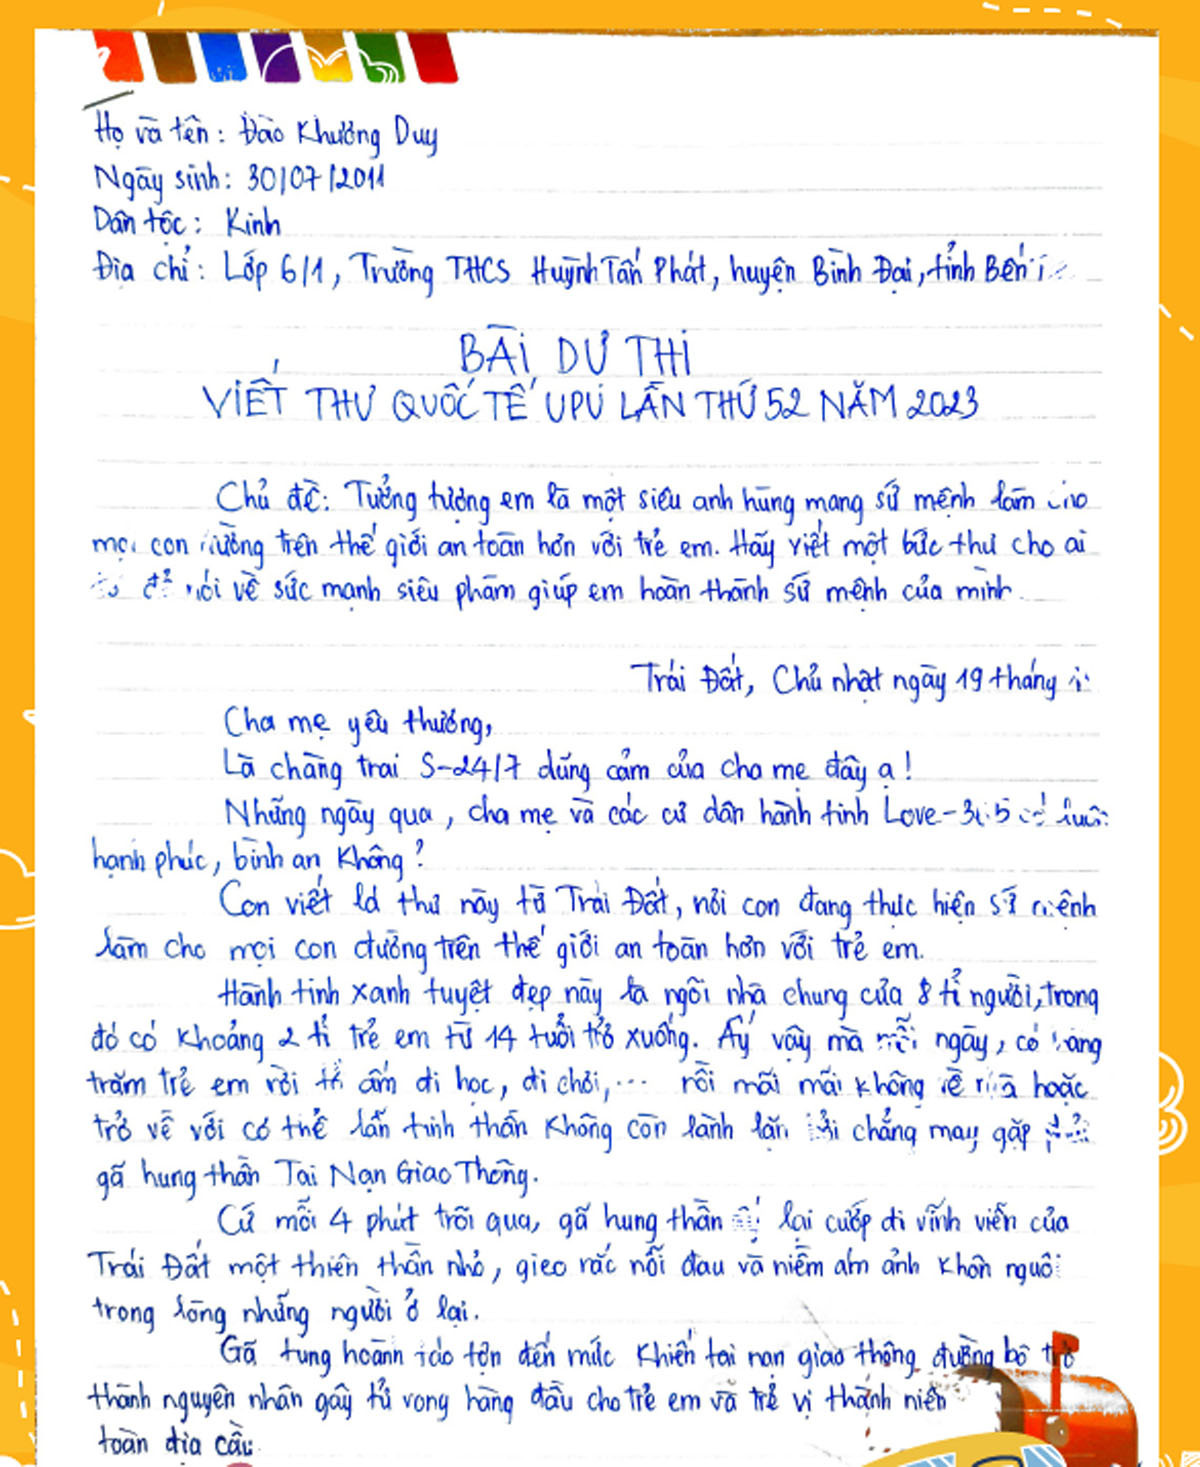 Họ và tên: Đào Khương Duy
Ngày sinh: 30/07/2011
Dân tộc: Kinh
Địa chỉ: Lớp 6/1, Trường THCS Huỳnh Tấn Phát, huyện Bình Đại, tỉnh Bến
BÀI DỰ THI
VIẾT THƯ QUỐC TẾ UPU LẦN THỨ 52 NĂM 2023
Chủ đề: Tưởng tượng em là một siêu anh hùng mang sứ mệnh làm cho
mọi con đường trên thế giới an toàn hơn với trẻ em. Hãy viết một bức thư cho ai
để nói về sức mạnh siêu phàm giúp em hoàn thành sứ mệnh của mình.
Trái Đất, Chủ nhật ngày 19 tháng
Cha mẹ yêu thương,
Là chàng trai S-24/7 dũng cảm của cha mẹ đây ạ!
Những ngày qua, cha mẹ và các cư dân hành tinh
hạnh phúc, bình an không?
Con viết lá thư này từ Trái Đất, nơi con đang thực hiện sứ mệnh
làm cho mọi con đường trên thế giới an toàn hơn với trẻ em.
Hành tinh xanh tuyệt đẹp này là ngôi nhà chung của 8 tỉ người, trong
đó có khoảng 2 tỉ trẻ em từ 14 tuổi trở xuống. Ấy vậy mà mỗi ngày, có hàng
trăm trẻ em rời tổ ấm đi học, đi chơi,... rồi mãi mãi không về nhà hoặc
trở về với cơ thể lẫn tinh thần không còn lành lặn bởi chẳng may gặp phải
gã hung thần Tai Nạn Giao Thông.
Cứ mỗi 4 phút trôi qua, gã hung thần ấy lại cướp đi vĩnh viễn của
Trái Đất một thiên thần nhỏ, gieo rắc nỗi đau và niềm ám ảnh khôn nguôi
trong lòng những người ở lại.
Gã tung hoành táo tợn đến mức khiến tai nạn giao thông đường bộ trở
thành nguyên nhân gây tử vong hàng đầu cho trẻ em và trẻ vị thành niên
toàn địa cầu.